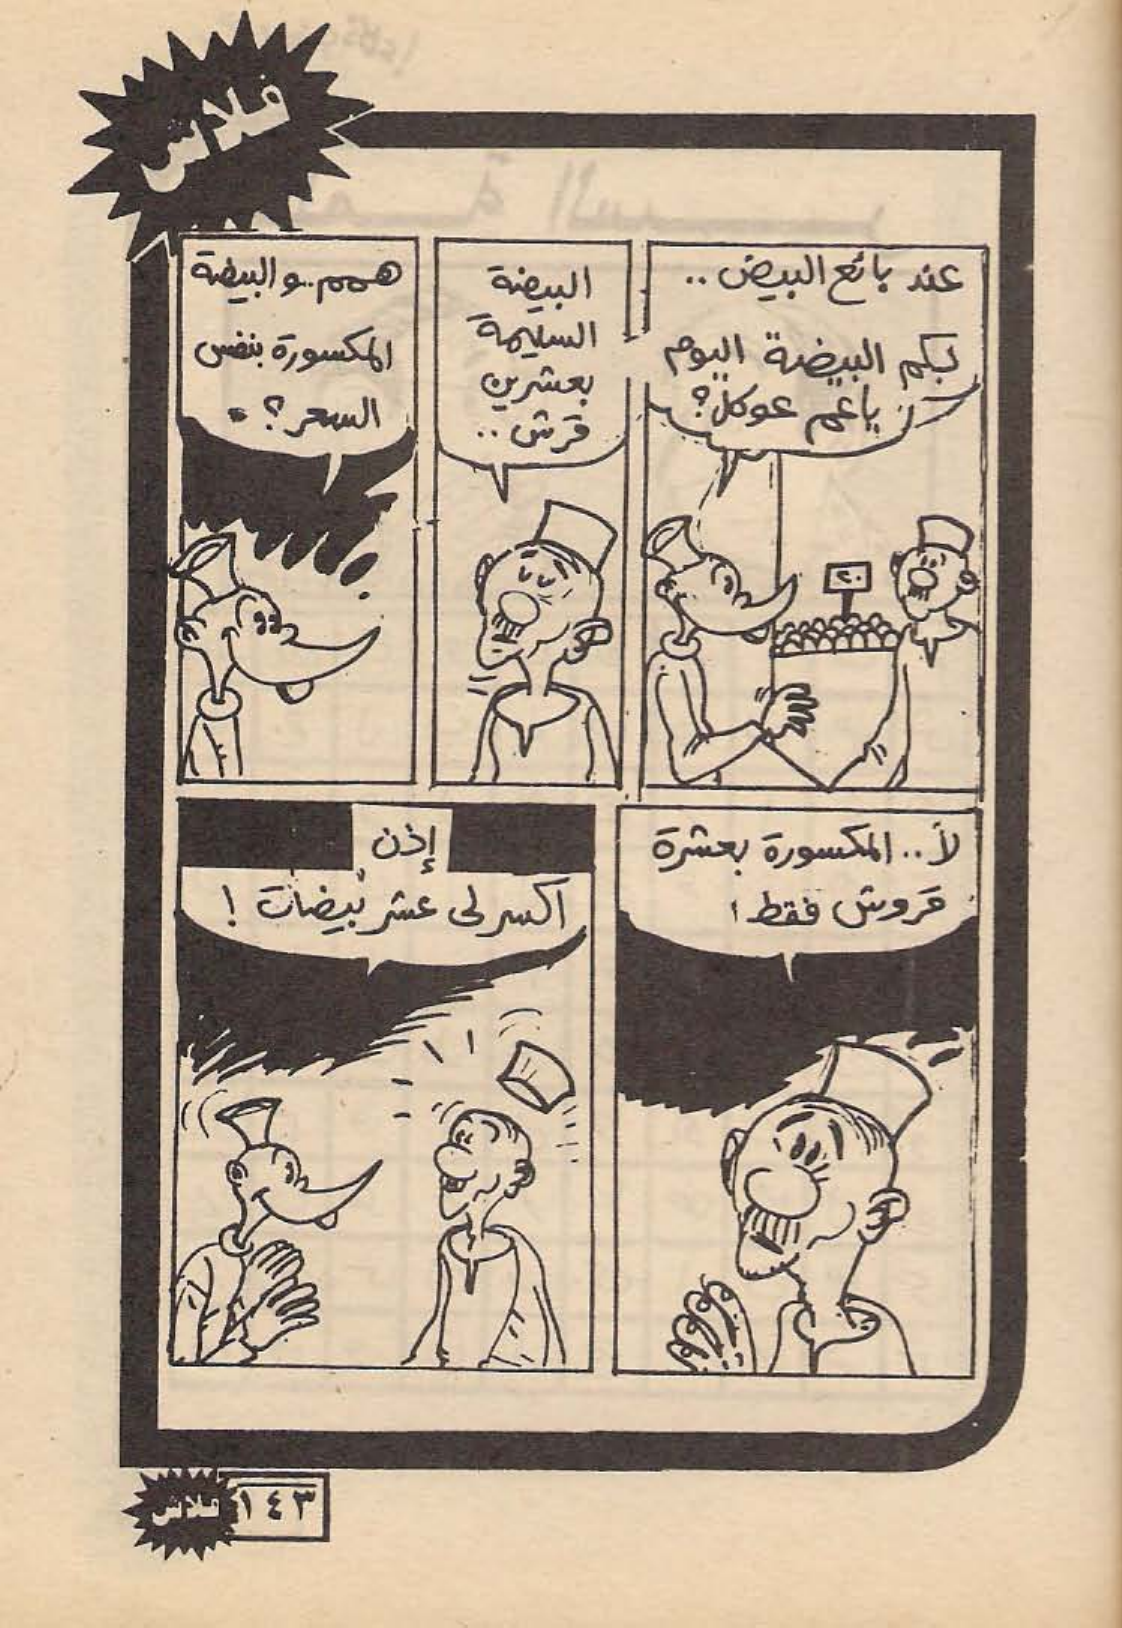 فلاش
عند بائع البيض ..
بكم البيضة اليوم
ياعم عوكل؟
٢٠
البيضة
السليمة
بعشرين
قرش ..
هممم .. والبيضة
المكسورة بنفس
السعر؟
لأ .. المكسورة بعشرة
قروش فقط!
إذن
اكسر لى عشر بيضات !
فلاش
١٤٣